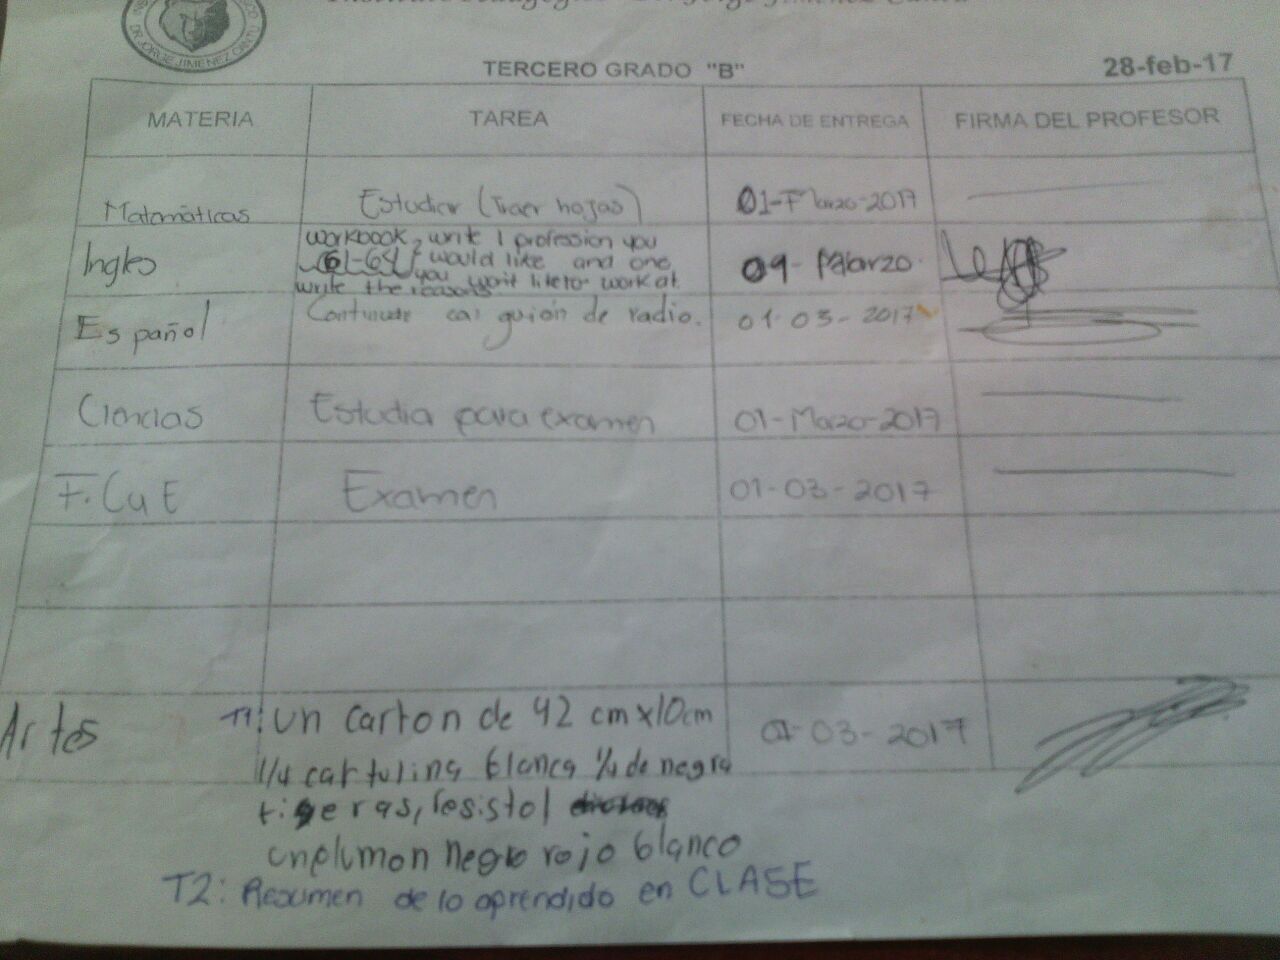 DR. JORGE JIMENEZ CANTU
TERCERO GRADO "B"
28-feb-17
MATERIA TAREA FECHA DE ENTREGA FIRMA DEL PROFESOR
Matemáticas Estudiar (Traer hojas) 01-Marzo-2017
Ingles workbook, write 1 profession you
61-64 would like and one
you won't like to work at.
write the reasons
09- Marzo.
Español guión de radio. 01-03-2017
Ciencias Estudia para examen 01-Marzo-2017
F. C y E Examen 01-03-2017
Artes T1: un carton de 42 cm x 10cm 01-03-2017
1/4 cartulina blanca 1/4 de negra
tigeras, resistol
un plumon negro rojo blanco
T2: Resumen de lo aprendido en CLASE